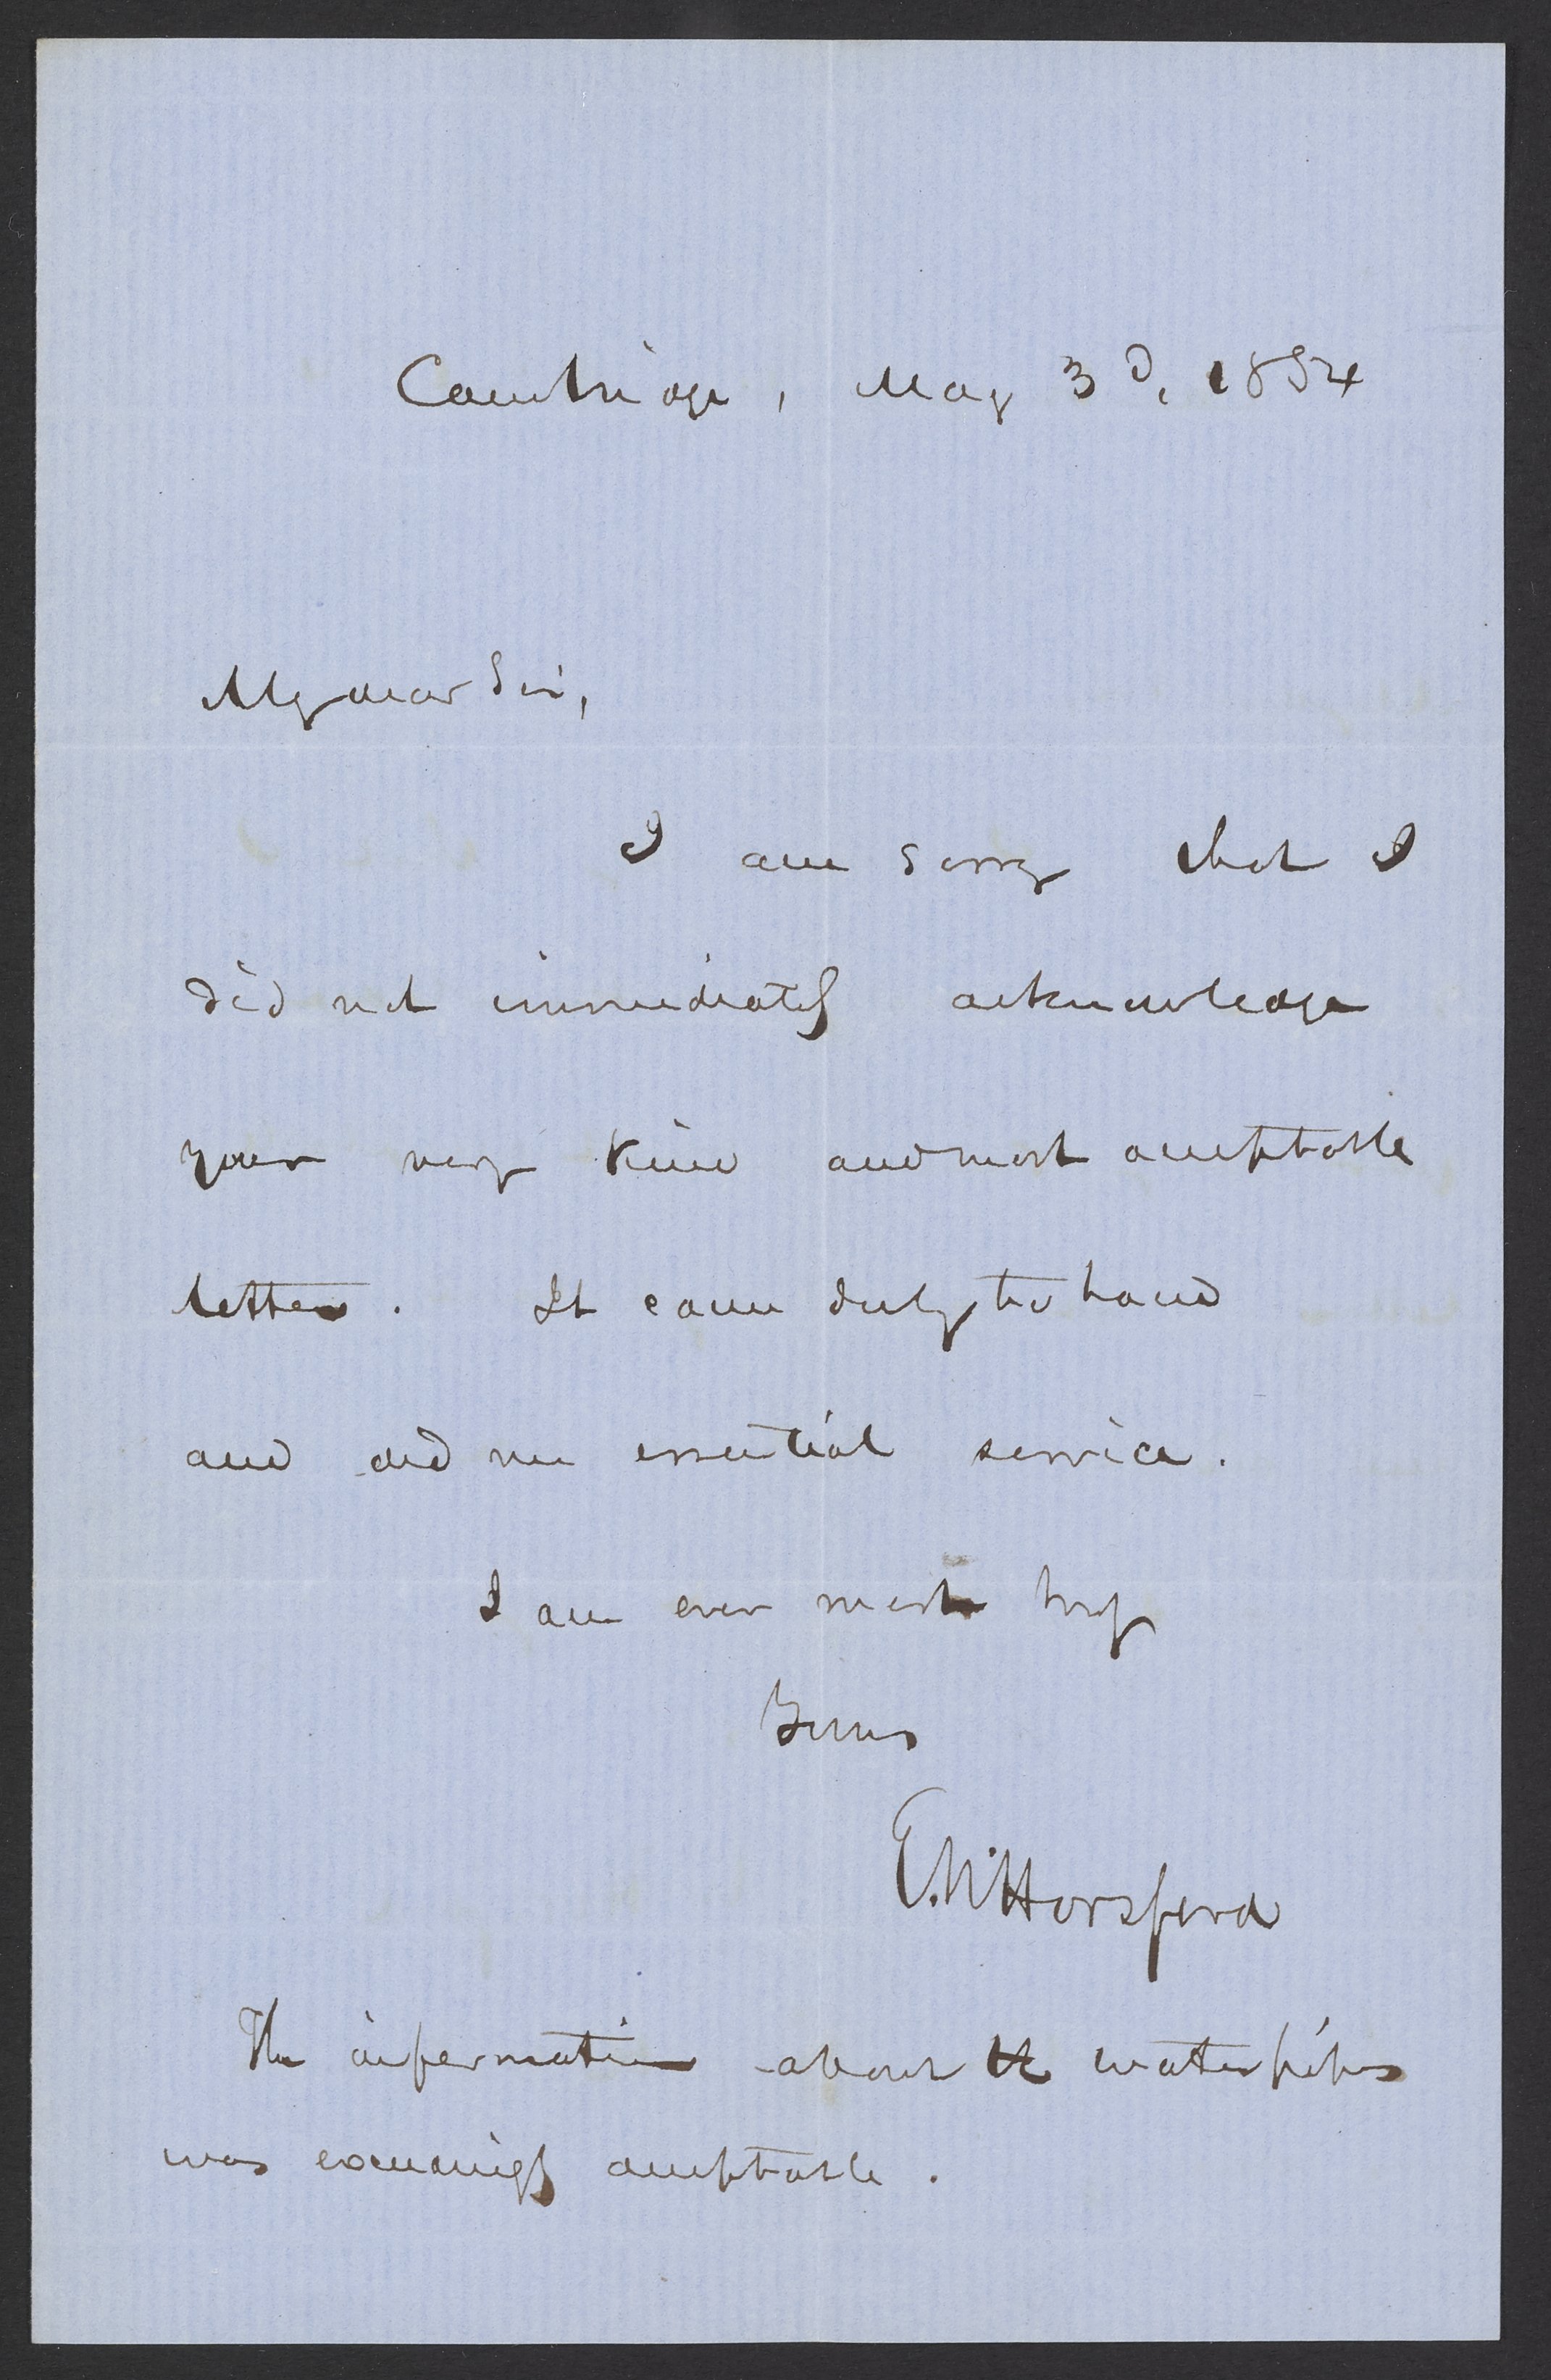 Cambridge, May 3d, 1854
My dear Sir,
I am sorry that I
did not immediately acknowledge
your very kind and most acceptable
letter. It came duly to hand
and did me essential service.
I am ever most truly
Yours
E. N. Horsford
The information about the water pipes
was exceedingly acceptable.